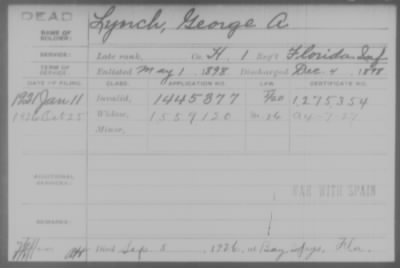 DEAD
NAME OF SOLDIER: Lynch, George A.
SERVICE: Late rank, Co. H, 1 Reg't Florida Inf
TERM OF SERVICE: Enlisted May 1, 1898 Discharged Dec. 4, 1898
DATE OF FILING. CLASS. APPLICATION NO. LAW. CERTIFICATE NO.
1921 Jan 11 Invalid, 1445377 Fla 1,275,354
1926 Oct 25 Widow, 1559120
Minor,
ADDITIONAL SERVICES:
WAR WITH SPAIN
REMARKS:
Died Sep. 1926, at Bay Fla.